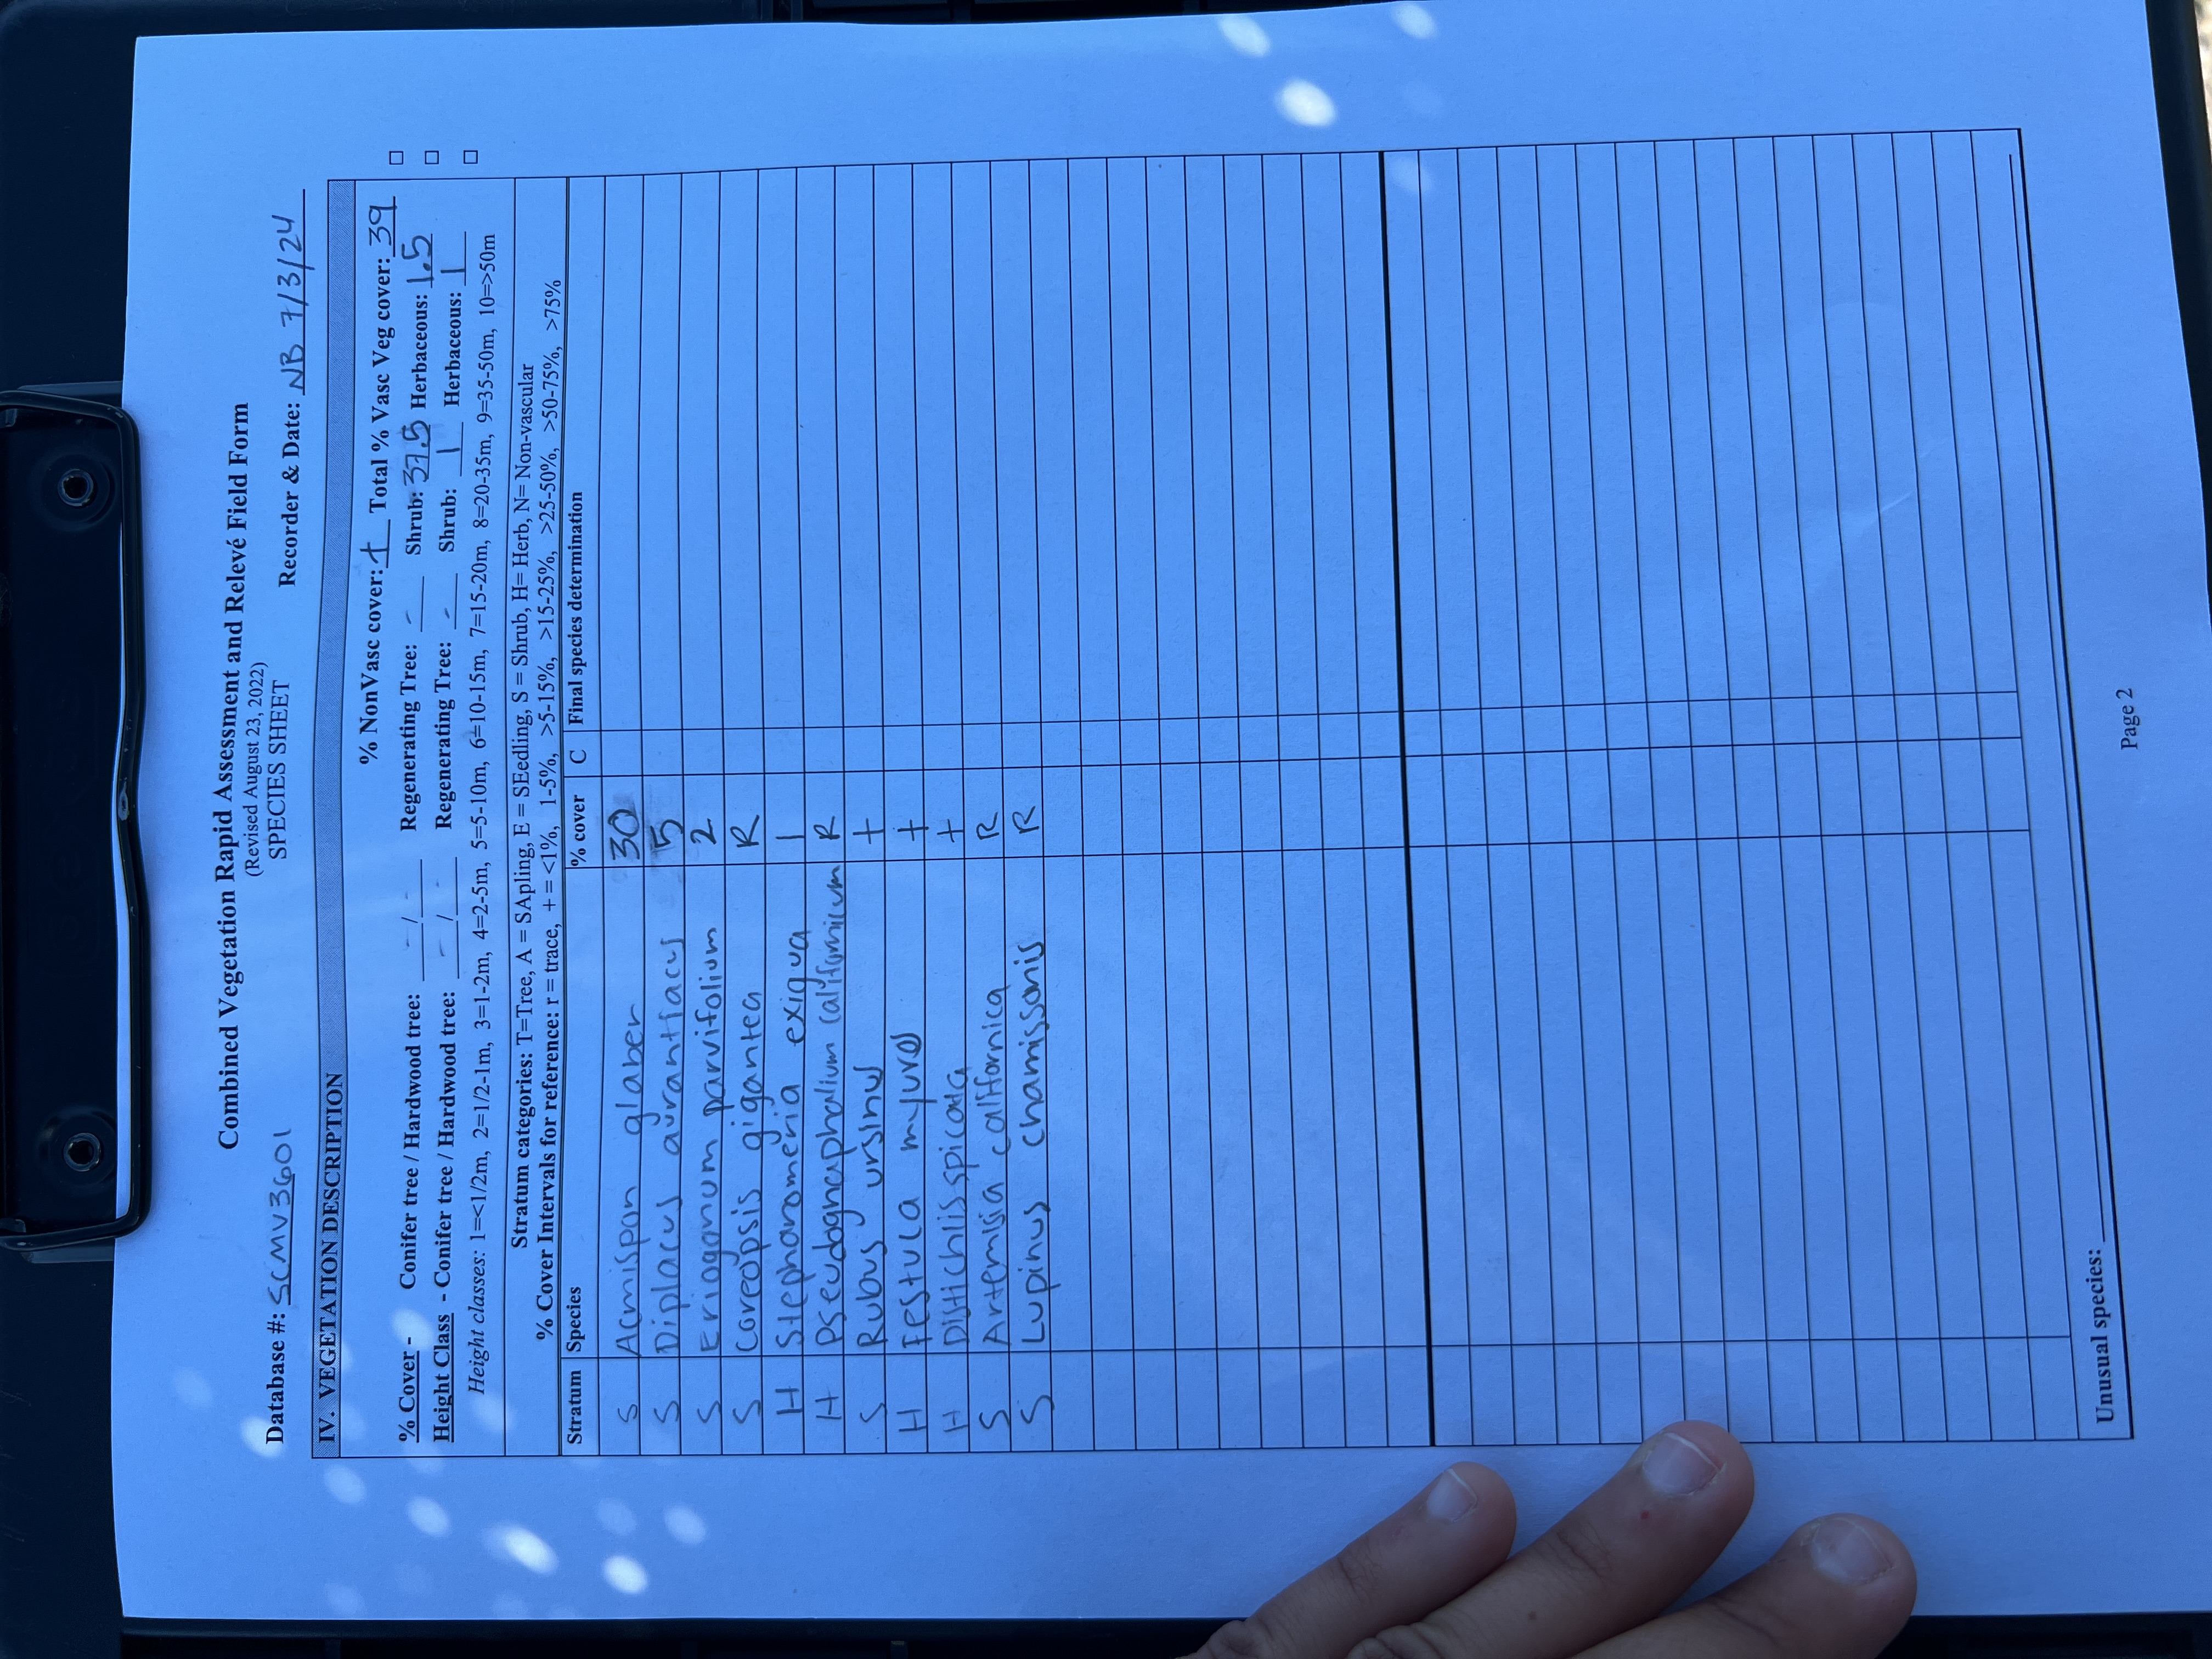 Combined Vegetation Rapid Assessment and Relevé Field Form
(Revised August 23, 2022)
SPECIES SHEET
Database #: SCMV3601 Recorder & Date: NB 7/3/24
IV. VEGETATION DESCRIPTION
% NonVasc cover: + Total % Vasc Veg cover: 39
% Cover - Conifer tree / Hardwood tree: - / - Regenerating Tree: - Shrub: 37.5 Herbaceous: 1.5
Height Class - Conifer tree / Hardwood tree: - / - Regenerating Tree: - Shrub: 1 Herbaceous: 1
Height classes: 1=<1/2m, 2=1/2-1m, 3=1-2m, 4=2-5m, 5=5-10m, 6=10-15m, 7=15-20m, 8=20-35m, 9=35-50m, 10=>50m
Stratum categories: T=Tree, A = SApling, E = SEedling, S = Shrub, H= Herb, N= Non-vascular
% Cover Intervals for reference: r = trace, + = <1%, 1-5%, >5-15%, >15-25%, >25-50%, >50-75%, >75%
Stratum Species % cover C Final species determination
S Acmispon glaber 30
S Diplacus aurantiacus 5
S Eriogonum parvifolium 2
S Coreopsis gigantea R
H Stephanomeria exigua 1
H Pseudognaphalium californicum R
S Rubus ursinus +
H Festuca myuros +
H Distichlis spicata +
S Artemisia californica R
S Lupinus chamissonis R
Unusual species:
Page 2